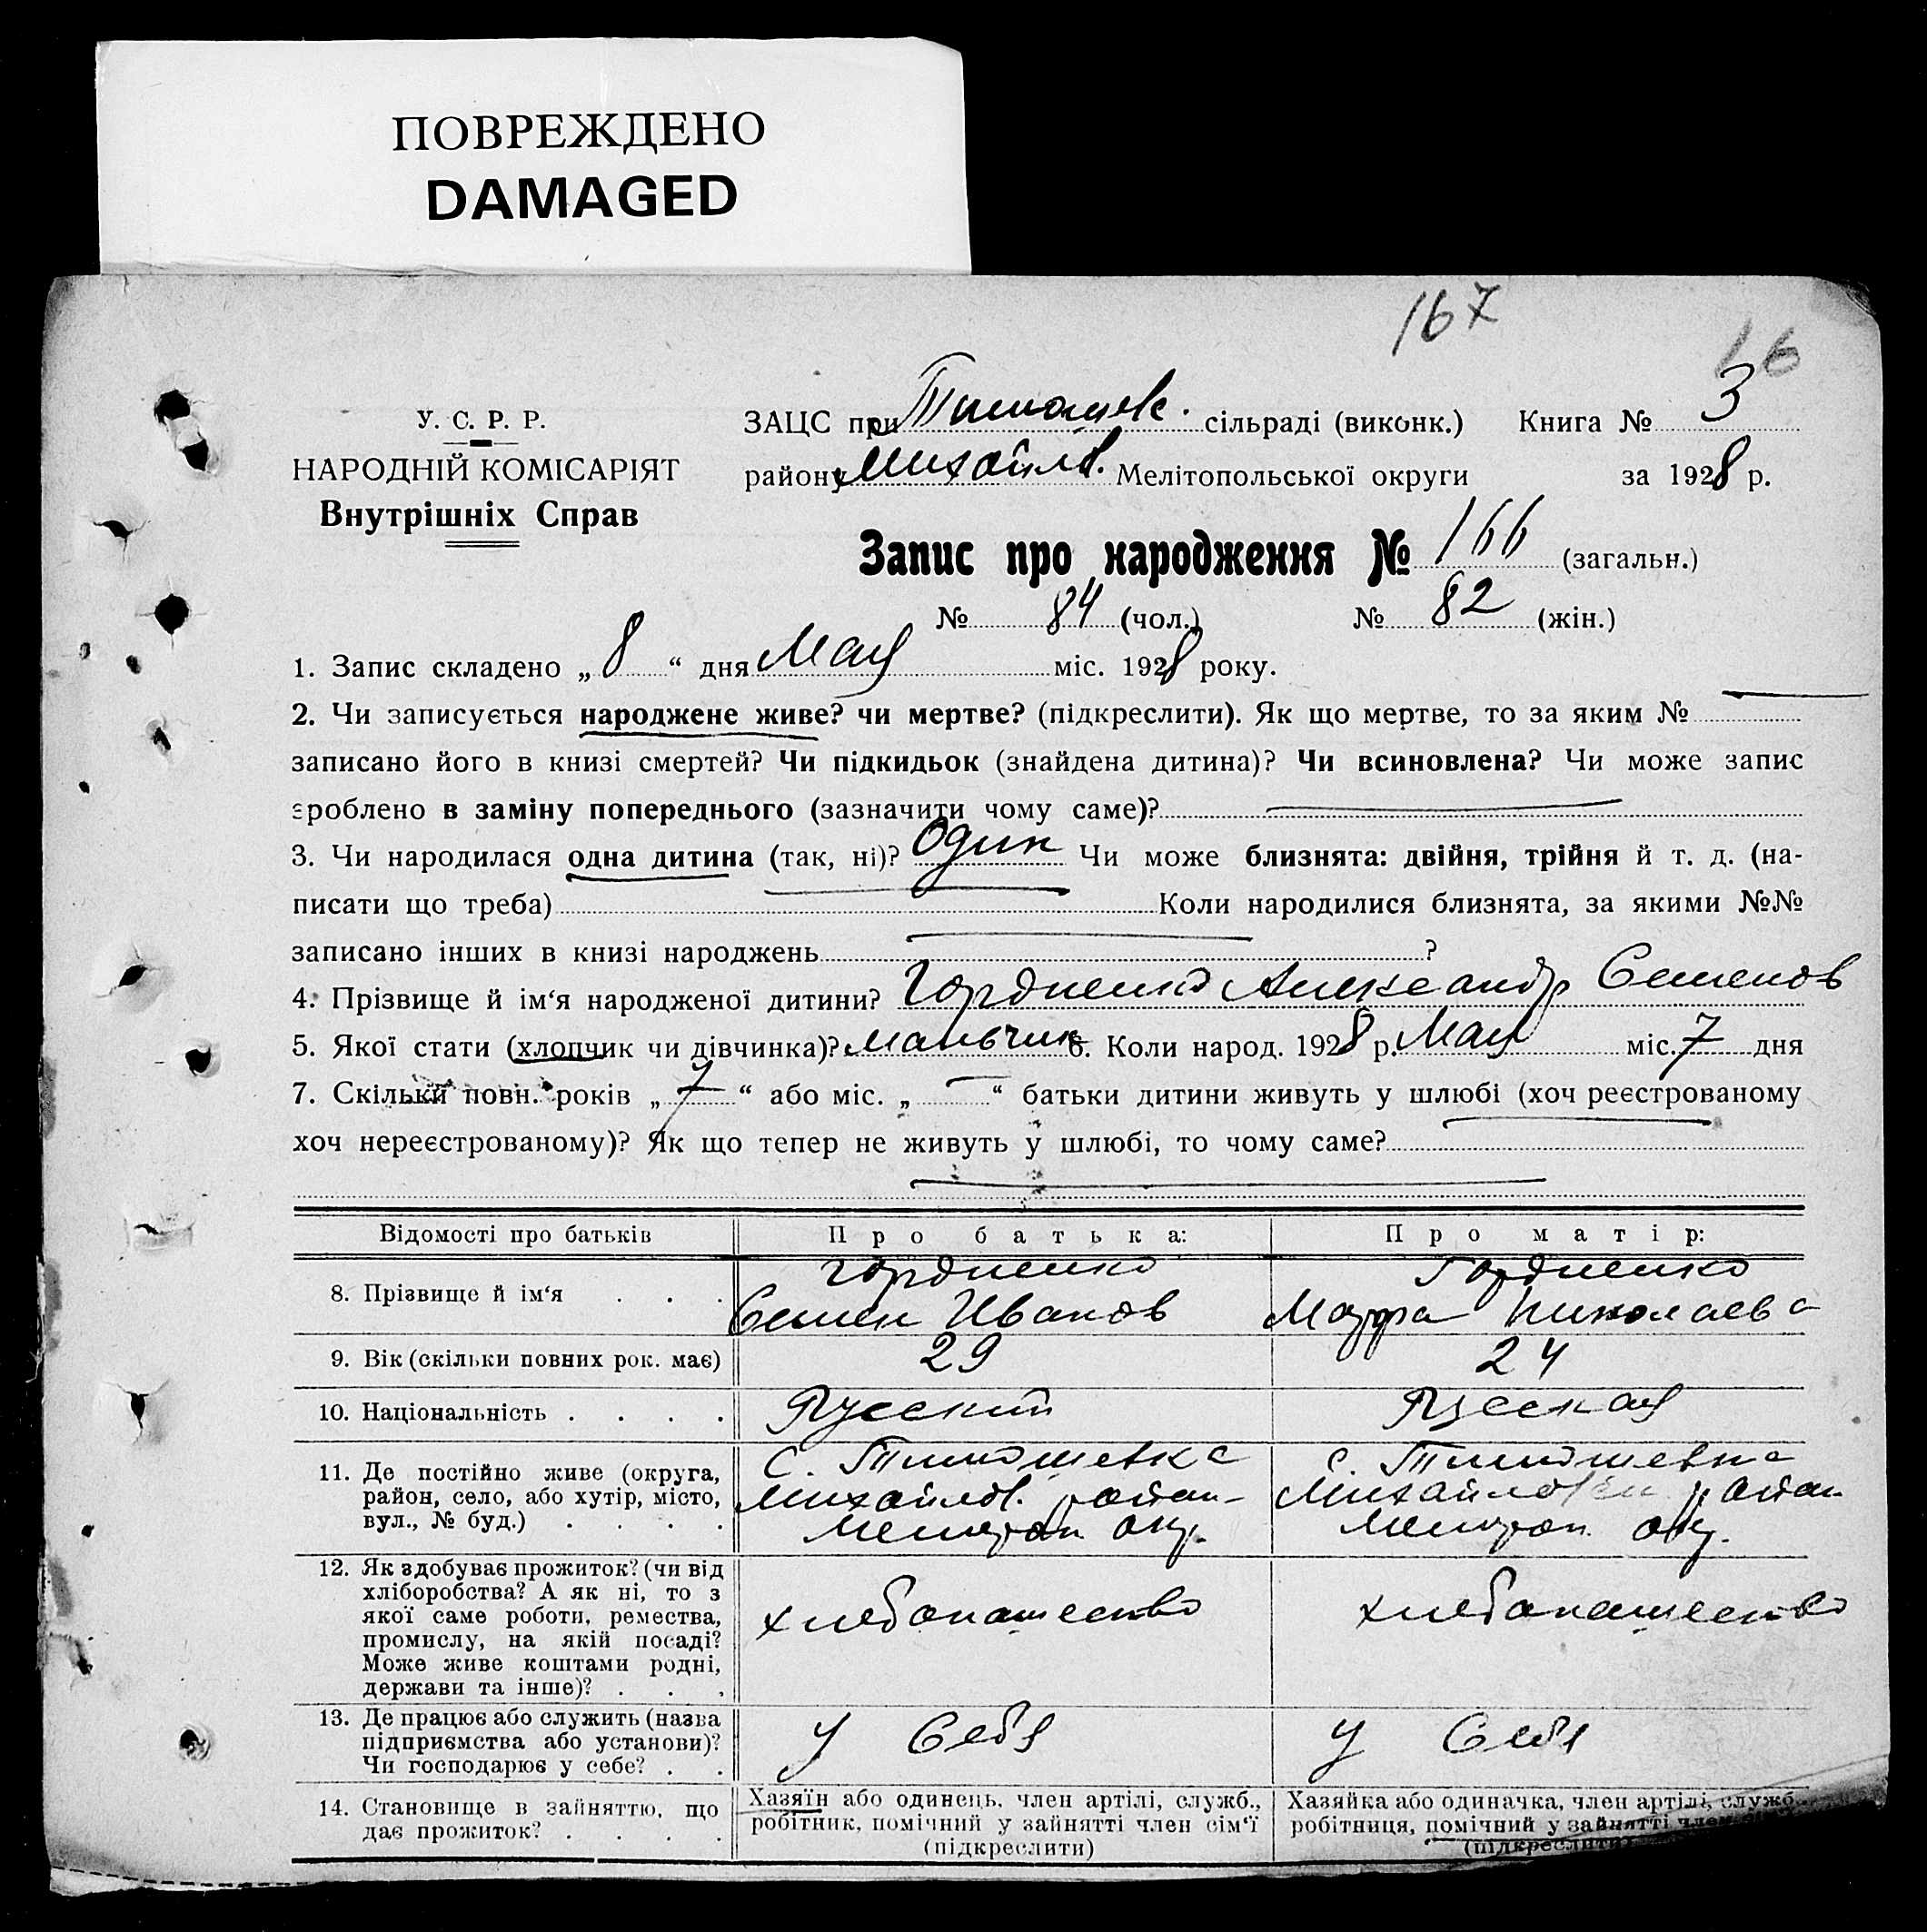 ПОВРЕЖДЕНО
DAMAGED
167
66
У. С. Р. Р.
НАРОДНІЙ КОМІСАРІЯТ
Внутрішніх Справ
ЗАЦС при Тимошевс. сільраді (виконк.) Книга № 3
району Михайлов. Мелітопольської округи за 1928 р.
Запис про народження № 166 (загальн.)
№ 84 (чол.) № 82 (жін.)
1. Запис складено „ 8 “ дня Мая міс. 1928 року.
2. Чи записується народжене живе? чи мертве? (підкреслити). Як що мертве, то за яким №
записано його в книзі смертей? Чи підкидьок (знайдена дитина)? Чи всиновлена? Чи може запис
зроблено в заміну попереднього (зазначити чому саме)?
3. Чи народилася одна дитина (так, ні)? Один Чи може близнята: двійня, трійня й т. д. (на-
писати що треба) Коли народилися близнята, за якими №№
записано інших в книзі народжень ?
4. Прізвище й ім‘я народженої дитини? Гордиенко Александр Семенов
5. Якої стати (хлопчик чи дівчинка)? мальчик 6. Коли народ. 1928 р. Мая міс. 7 дня
7. Скільки повн. років „ 7 “ або міс. „ — “ батьки дитини живуть у шлюбі (хоч реєстрованому
хоч нереєстрованому)? Як що тепер не живуть у шлюбі, то чому саме?
Відомості про батьків Про батька: Про матір:
8. Прізвище й ім‘я . . . Гордиенко Семен Иванов Гордиенко Мавра Николаева
9. Вік (скільки повних рок. має) 29 24
10. Національність . . . . Русский Русская
11. Де постійно живе (округа,
район, село, або хутір, місто,
вул., № буд.) . . . .
С. Тимошевка
Михайлов. район-
Мелитоп окр.
с. Тимошевка
Михайловски район
Мелитоп. окр.
12. Як здобуває прожиток? (чи від
хліборобства? А як ні, то з
якої саме роботи, ремества,
промислу, на якій посаді?
Може живе коштами родні,
держави та інше)? . . .
хлебопашество хлебопашество
13. Де працює або служить (назва
підприємства або установи)?
Чи господарює у себе? . .
у Себя у Себя
14. Становище в зайняттю, що
дає прожиток? . . . .
Хазяїн або одинець, член артілі, служб.,
робітник, помічний у зайнятті член сім‘ї
(підкреслити)
Хазяйка або одиначка, член артілі, служб.
робітниця, помічний у зайнятті член
(підкреслити)